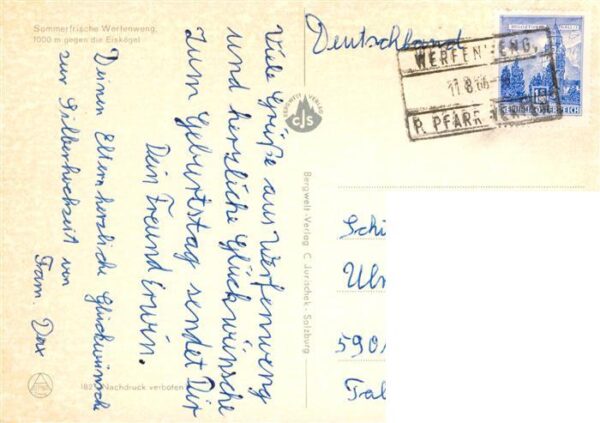 Sommerfrische Werfenweng,
1000 m gegen die Eiskögel
Viele Grüße aus Werfenweng
und herzliche Glückwünsche
zum Geburtstag sendet Dir
Dein Freund Erwin.
Deinen Eltern herzliche Glückwünsche
zur Silberhochzeit von
Fam. Dax
Nachdruck verboten
BERGWELT VERLAG
cjs
Bergwelt-Verlag C. Jurischek, Salzburg
Deutschland
WERFENWENG,
11 8 66
P. PFARR
Schi
Ulr
590
Fal